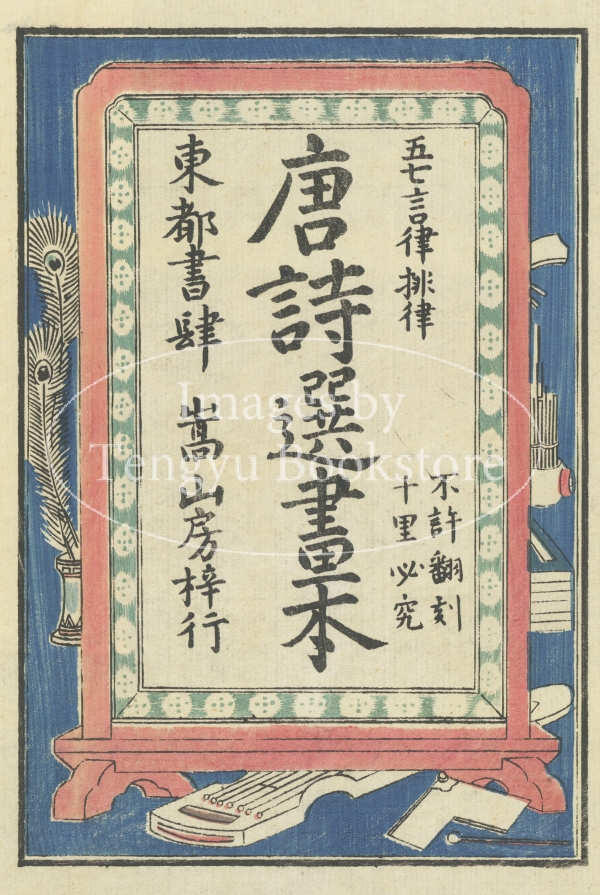 五七言律排律
不許翻刻
十里必究
唐詩選畫本
東都書肆 嵩山房梓行
Images by
Tengyu Bookstore